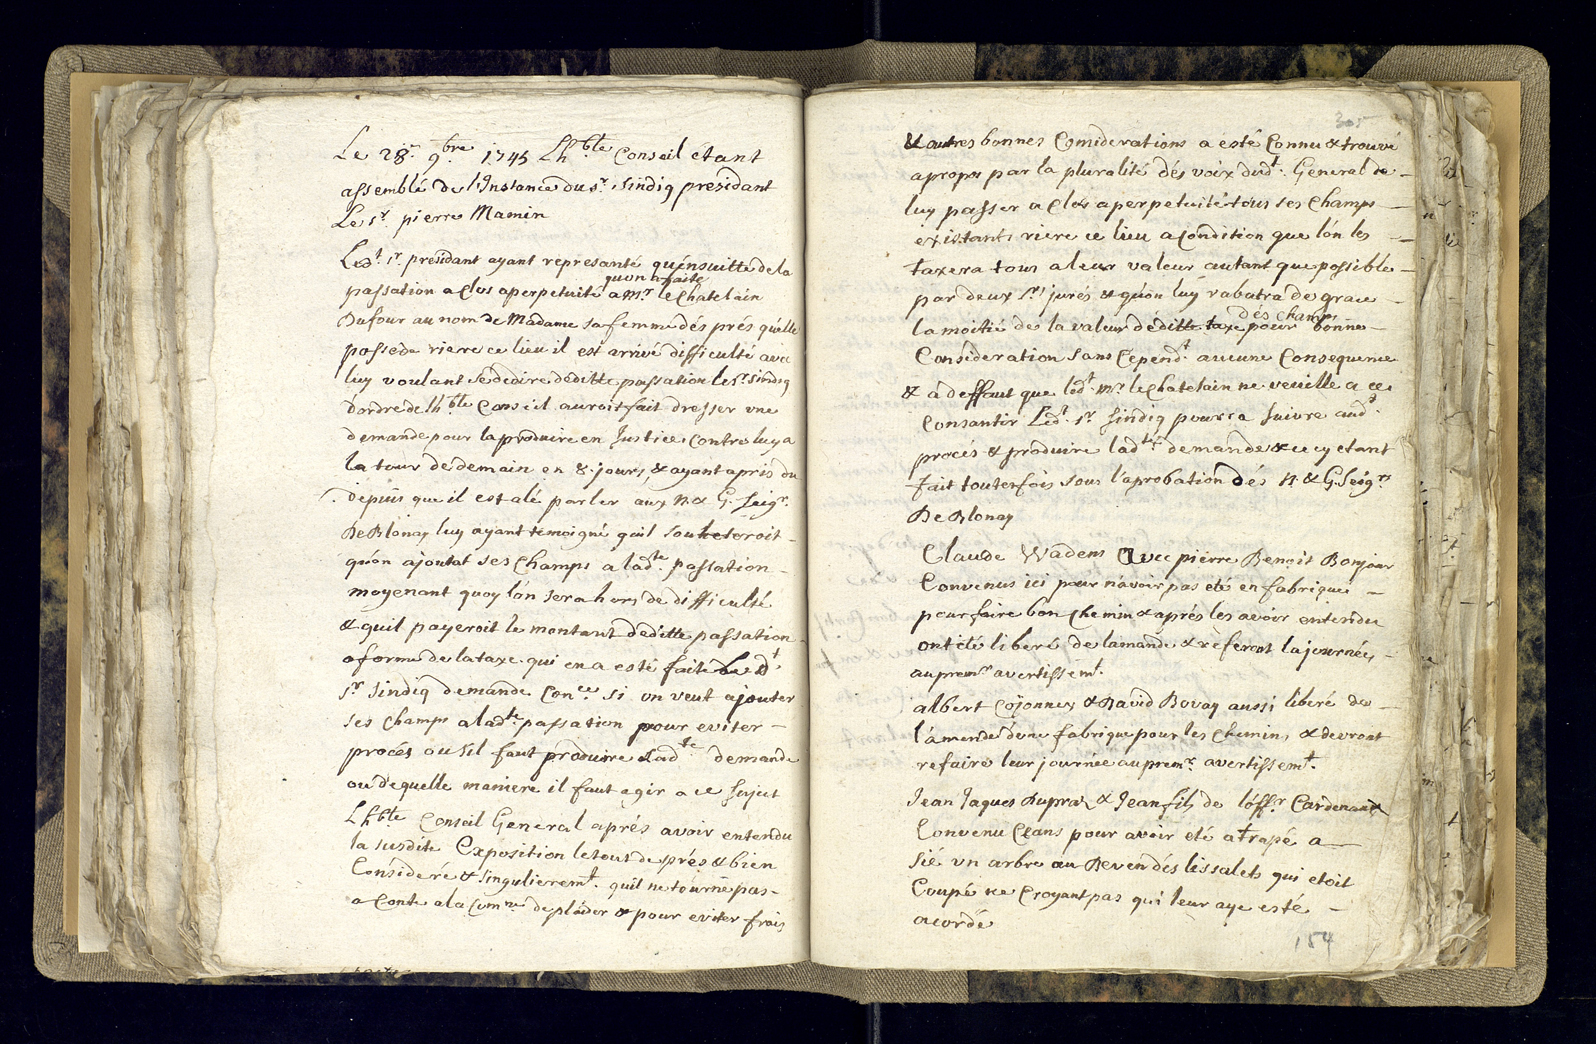 Le 28e. 9bre. 1745 Lhble Conseil etant
assemblé de l'Instance du sr. sindiq presidant
Le sr. pierre Mamin
Ledt. sr. présidant ayant represanté qu'ensuitte de la
quon a faite
passation a Clos a perpetuité a Mr. le Chatelain
Dufour au nom de Madame sa femme dés prés quelle
possede riere ce lieu il est arrivé difficulté avec
luy voulant se dedire déditte passation le sr. sindiq
dordre de lhble Conseil auroit fait dresser une
demande pour la produire en Justice Contre luy a
la tour de demain en 8. jours, & ayant apris du
depuis que il est alé parler aux N. & G. seigr.
De Blonay luy ayant temoigné quil souheteroit
qu'on ajoutat ses Champs a ladte. passation
moyenant quoy l'on sera hors de difficulté
& quil payeroit le montant déditte passation
a forme de la taxe qui en a esté faite Ledt.
sr. sindiq demande Conce. si on veut ajouter
ses Champs a ladte passation pour eviter
procés ou s'il faut produire ladte demande
ou de quelle maniere il faut agir a ce sujet
Lhble Conseil General aprés avoir entendu
la susdite Exposition le tout de prés & bien
Considéré & singulieremt. quil ne tourne pas
a Conte a la Comne de pléder & pour eviter frais
305
& autres bonnes Considerations a esté Connu & trouvé
apropos par la pluralité dés voix dudt. General de
luy passer a Clos a perpetuité tous ses Champs
existants riere ce lieu a Condition que l'on les
taxera tous a leur valeur autant que possible
par deux srs jurés & qu'on luy rabatra de grace
dés Champs
la moitié de la valeur déditte taxe pour bonne
Considération sans Cependt. aucune Consequence
& a deffaut que ledt. mr. le Chatelain ne veuille a ce
Consantir Ledt. sr sindiq pourra suivre audt.
procés & produire ladte demande & cecy etant
fait touterfois sous l'aprobation dés N. & G. seigrs
De Blonay
Claude Wadens Avec pierre Benoit Bonjour
Convenus ici pour n'avoir pas eté en fabrique
pour faire bon chemin & aprés les avoir entendu
ont eté liberé de lamande & referont la journée,
au premr avertissemt.
albert Cojonnex & David Bovay aussi liberé de
l'amende dune fabrique pour les Chemins & devront
refaire leur journée au premr. avertissemt.
Jean Jaques Dupraz & Jean fils de l'offr. Cardenaux
Convenu Ceans pour avoir eté atrapé a
sié un arbre au Deven dés lissalets qui etoit
Coupé ne Croyant pas qui leur aye esté
acordé
154